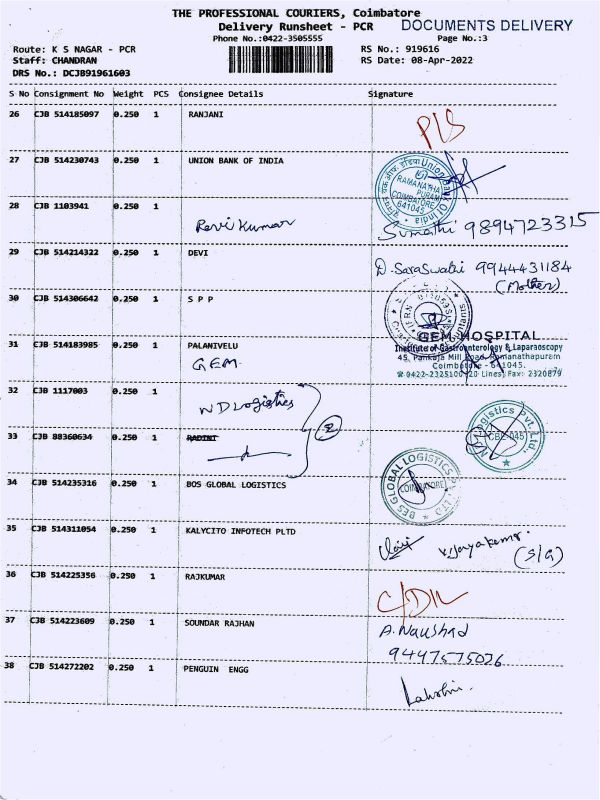 THE PROFESSIONAL COURIERS, Coimbatore
Delivery Runsheet - PCR DOCUMENTS DELIVERY
Phone No.:0422-3505555 Page No.:3
Route: K S NAGAR - PCR RS No.: 919616
Staff: CHANDRAN RS Date: 08-Apr-2022
DRS No.: DCJB91961603
S No Consignment No Weight PCS Consignee Details Signature
26 CJB 514185097 0.250 1 RANJANI
27 CJB 514230743 0.250 1 UNION BANK OF INDIA
Union Bank Of India
RAMANATHA
PURAM
COIMBATORE
641045
28 CJB 1103941 0.250 1
Ravi Kumar Sumathi 9894723315
29 CJB 514214322 0.250 1 DEVI
D. Saraswathi 9944431184
(Mother)
30 CJB 514306642 0.250 1 S P P
31 CJB 514183985 0.250 1 PALANIVELU
GEM
GEM HOSPITAL
Institute of Gastroenterology & Laparoscopy
45, Pankaja Mill Road, Ramanathapuram
Coimbatore - 641045.
0422-2325100 (20 Lines) Fax: 2320879
32 CJB 1117003 0.250 1
ND Logistics
2
33 CJB 88360634 0.250 1 RADINI
Logistics Pvt. Ltd.
CBE-045
34 CJB 514235316 0.250 1 BOS GLOBAL LOGISTICS
GLOBAL LOGISTICS
COIMBATORE
35 CJB 514311054 0.250 1 KALYCITO INFOTECH PLTD
Vijayakumar
(S/G)
36 CJB 514225356 0.250 1 RAJKUMAR
37 CJB 514223609 0.250 1 SOUNDAR RAJHAN
A. Naushad
9447575026
38 CJB 514272202 0.250 1 PENGUIN ENGG
Lakshmi.